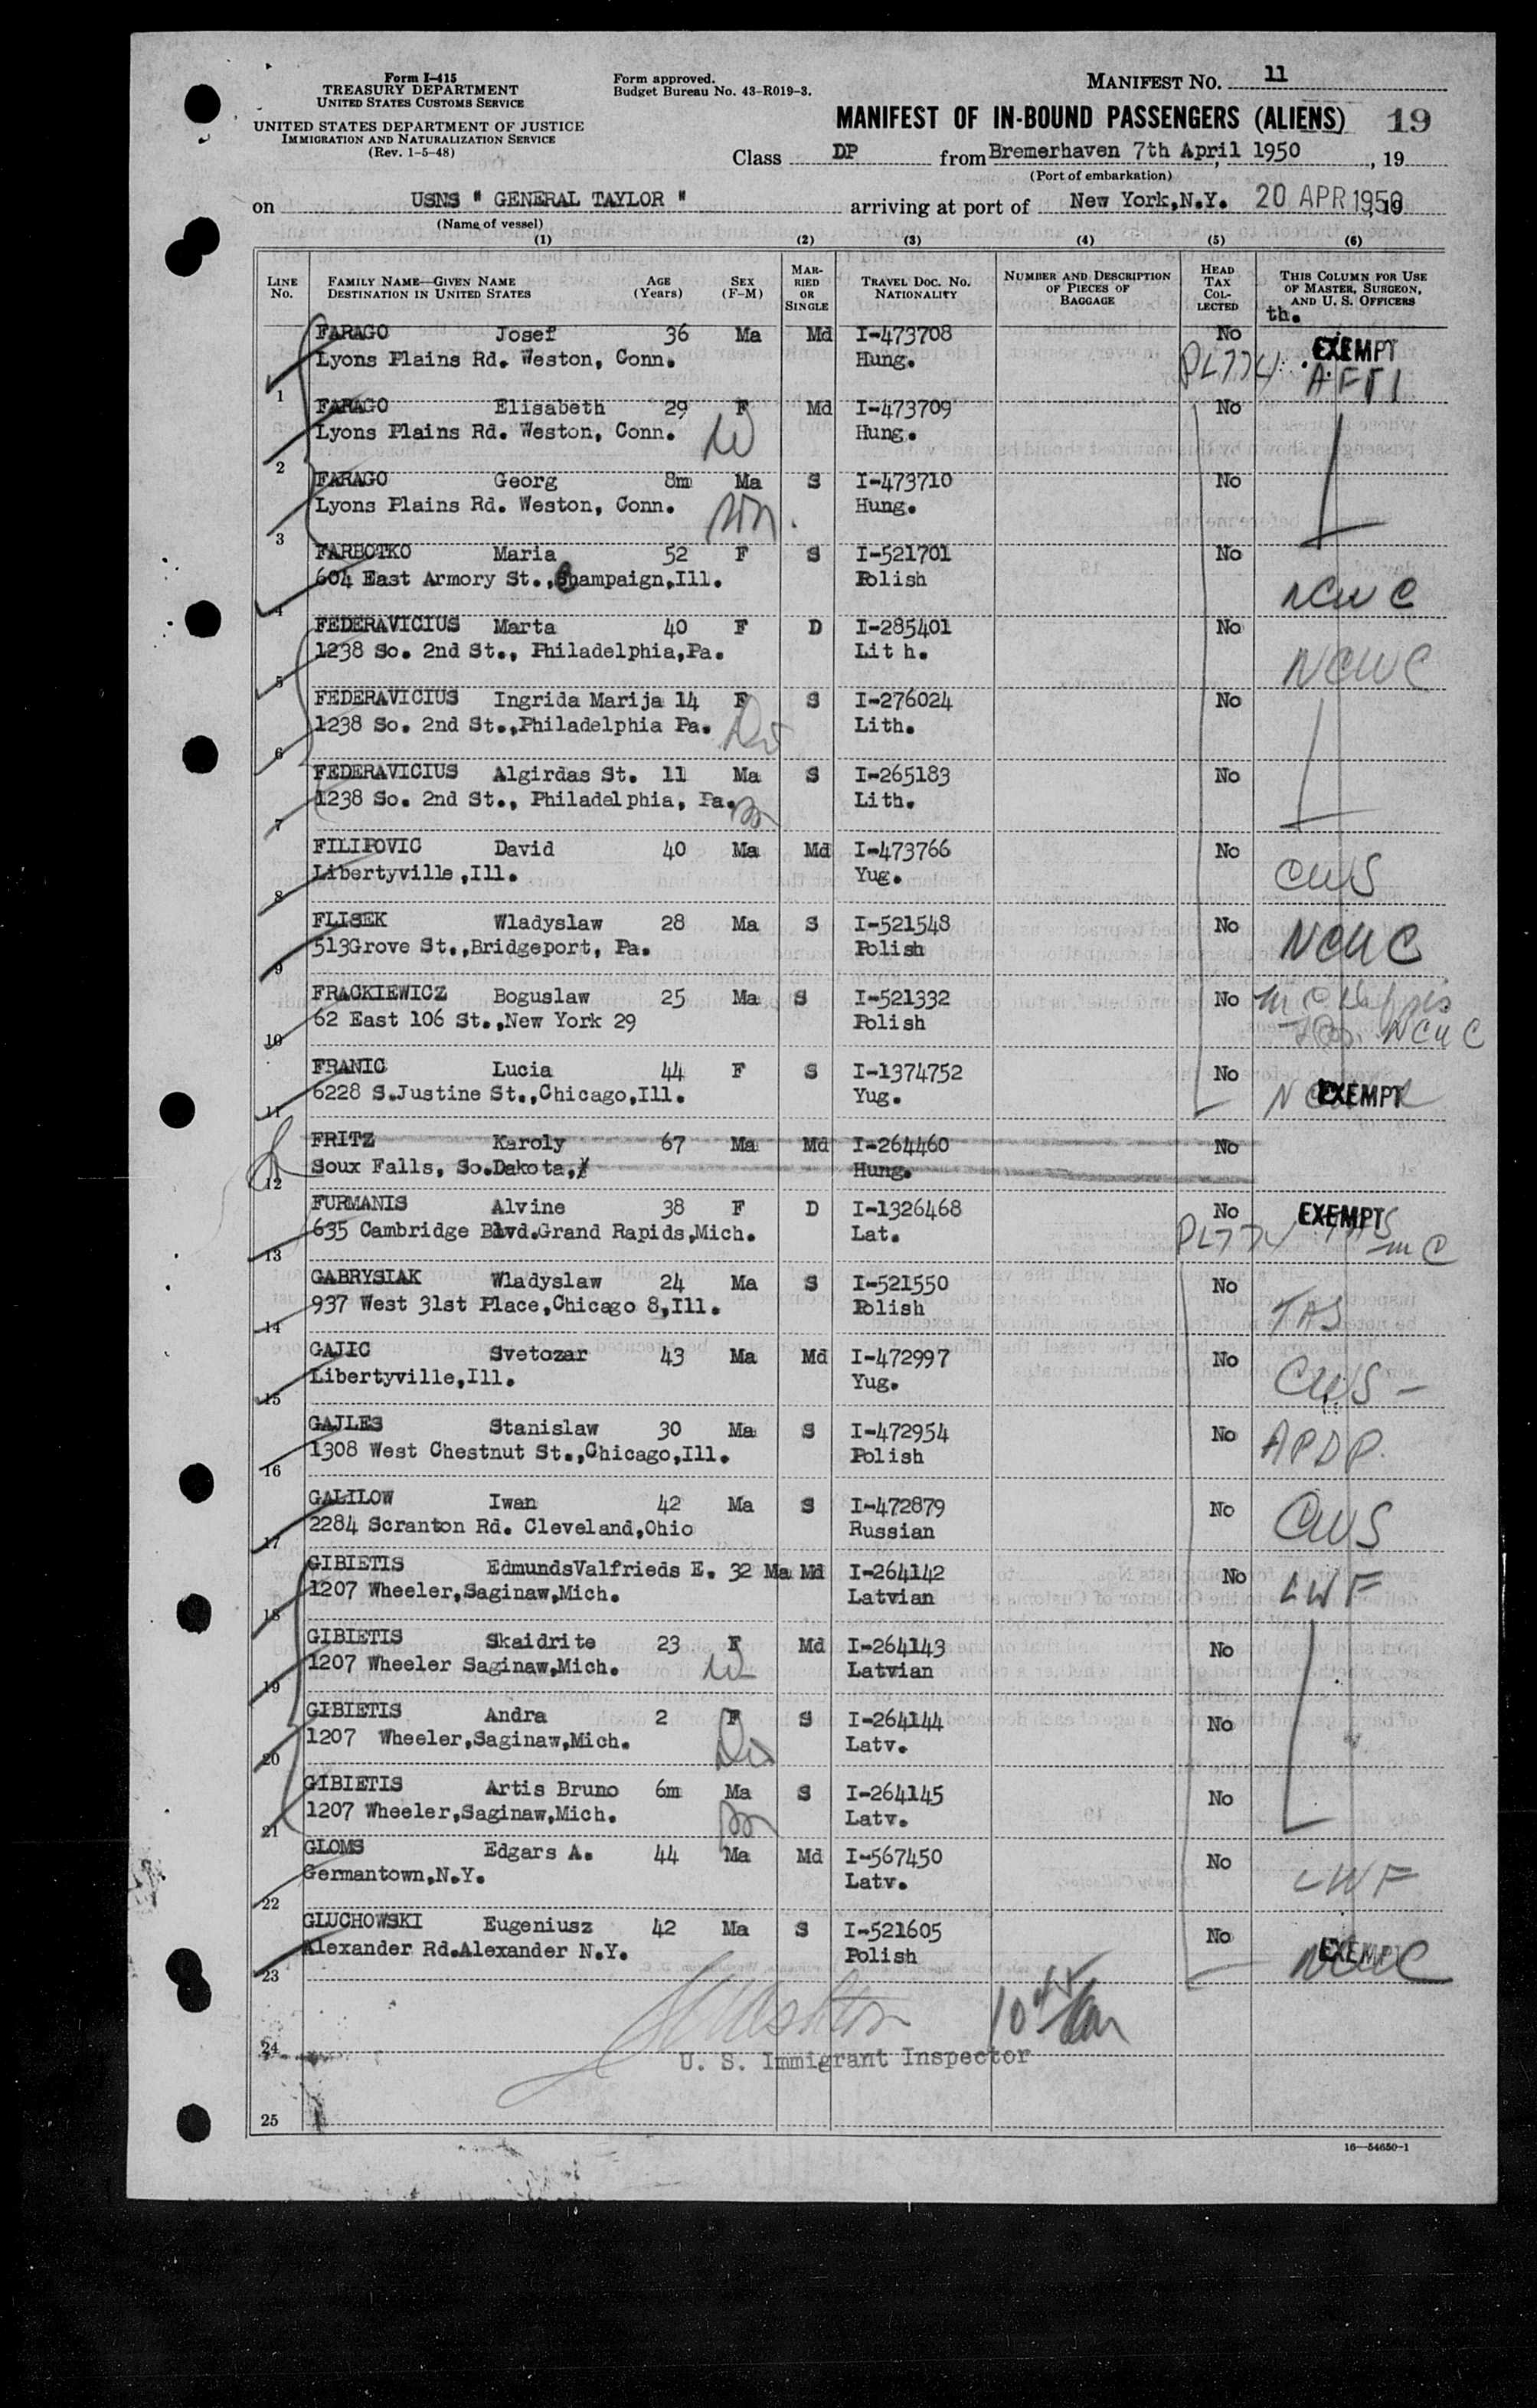 Form I-415
TREASURY DEPARTMENT
UNITED STATES CUSTOMS SERVICE
UNITED STATES DEPARTMENT OF JUSTICE
IMMIGRATION AND NATURALIZATION SERVICE
(Rev. 1-5-48)
Form approved.
Budget Bureau No. 43-R019-3.
MANIFEST NO. 11
MANIFEST OF IN-BOUND PASSENGERS (ALIENS) 19
Class DP from Bremerhaven 7th April, 1950, 19
(Port of embarkation)
on USNS " GENERAL TAYLOR " arriving at port of New York,N.Y. 20 APR 1950, 19
(Name of vessel)
(1) (2) (3) (4) (5) (6)
LINE No. FAMILY NAME—GIVEN NAME DESTINATION IN UNITED STATES AGE (Years) SEX (F-M) MARRIED OR SINGLE TRAVEL DOC. NO. NATIONALITY NUMBER AND DESCRIPTION OF PIECES OF BAGGAGE HEAD TAX COLLECTED THIS COLUMN FOR USE OF MASTER, SURGEON, AND U. S. OFFICERS
th.
FARAGO Josef 36 Ma Md I-473708 No EXEMPT
1 Lyons Plains Rd. Weston, Conn. Hung. PL774
FARAGO Elisabeth 29 F Md I-473709 No
2 Lyons Plains Rd. Weston, Conn. W Hung.
FARAGO Georg 8m Ma S I-473710 No
3 Lyons Plains Rd. Weston, Conn. son. Hung.
FARBOTKO Maria 52 F S I-521701 No
4 604 East Armory St.,Champaign,Ill. Polish NCWC
FEDERAVICIUS Marta 40 F D I-285401 No
5 1238 So. 2nd St., Philadelphia,Pa. Lit h. NCWC
FEDERAVICIUS Ingrida Marija 14 F S I-276024 No
6 1238 So. 2nd St.,Philadelphia Pa. Lith.
FEDERAVICIUS Algirdas St. 11 Ma S I-265183 No
7 1238 So. 2nd St., Philadelphia, Pa. Lith.
FILIPOVIC David 40 Ma Md I-473766 No
8 Libertyville,Ill. Yug. CWS
FLISEK Wladyslaw 28 Ma S I-521548 No
9 513Grove St.,Bridgeport, Pa. Polish NCWC
FRACKIEWICZ Boguslaw 25 Ma S I-521332 No
10 62 East 106 St.,New York 29 Polish NCWC
FRANIC Lucia 44 F S I-1374752 No
11 6228 S.Justine St.,Chicago,Ill. Yug. EXEMPT
FRITZ Karoly 67 Ma Md I-264460 No
12 Soux Falls, So.Dakota, Hung.
FURMANIS Alvine 38 F D I-1326468 No EXEMPT
13 635 Cambridge Blvd.Grand Rapids,Mich. Lat. PL774
GABRYSIAK Wladyslaw 24 Ma S I-521550 No
14 937 West 31st Place,Chicago 8,Ill. Polish TAS
GAJIC Svetozar 43 Ma Md I-472997 No
15 Libertyville,Ill. Yug. CWS -
GAJLES Stanislaw 30 Ma S I-472954 No
16 1308 West Chestnut St.,Chicago,Ill. Polish APDP.
GALILOW Iwan 42 Ma S I-472879 No
17 2284 Scranton Rd. Cleveland,Ohio Russian CWS
GIBIETIS EdmundsValfrieds E. 32 Ma Md I-264142 No
18 1207 Wheeler,Saginaw,Mich. Latvian LWF
GIBIETIS Skaidrite 23 F Md I-264143 No
19 1207 Wheeler Saginaw,Mich. W Latvian
GIBIETIS Andra 2 F S I-264144 No
20 1207 Wheeler,Saginaw,Mich. Latv.
GIBIETIS Artis Bruno 6m Ma S I-264145 No
21 1207 Wheeler,Saginaw,Mich. Latv.
GLOMS Edgars A. 44 Ma Md I-567450 No
22 Germantown,N.Y. Latv. LWF
GLUCHOWSKI Eugeniusz 42 Ma S I-521605 No
23 Alexander Rd.Alexander N.Y. Polish EXEMPT NCWC
24
U. S. Immigrant Inspector
25
16—54650-1